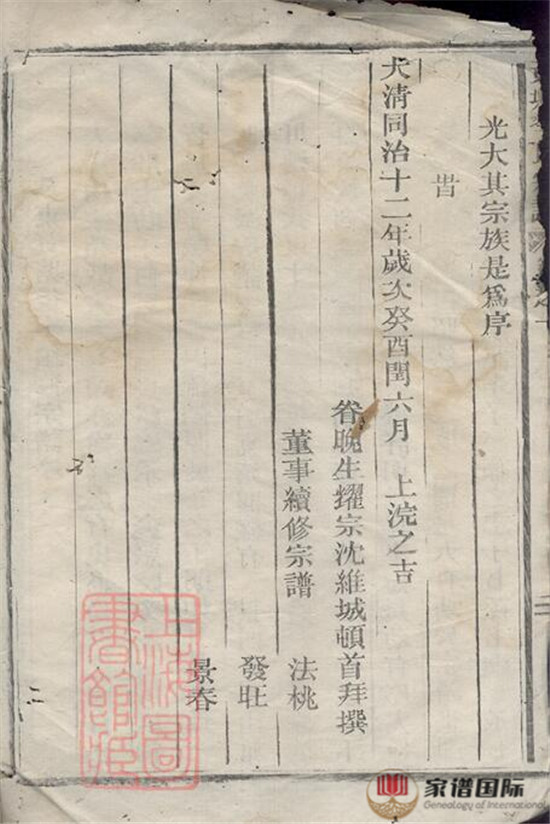 光大其宗族是爲序
旹
大清同治十二年歲次癸酉閏六月 上浣之吉
眷晚生耀宗沈維城頓首拜撰
董事續修宗譜 法桃
發旺
景春
二
上海圖
書館
家谱国际
Genealogy of International